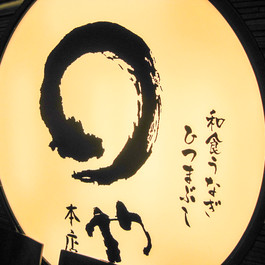 和食うなぎ
ひつまぶし
のや
本店